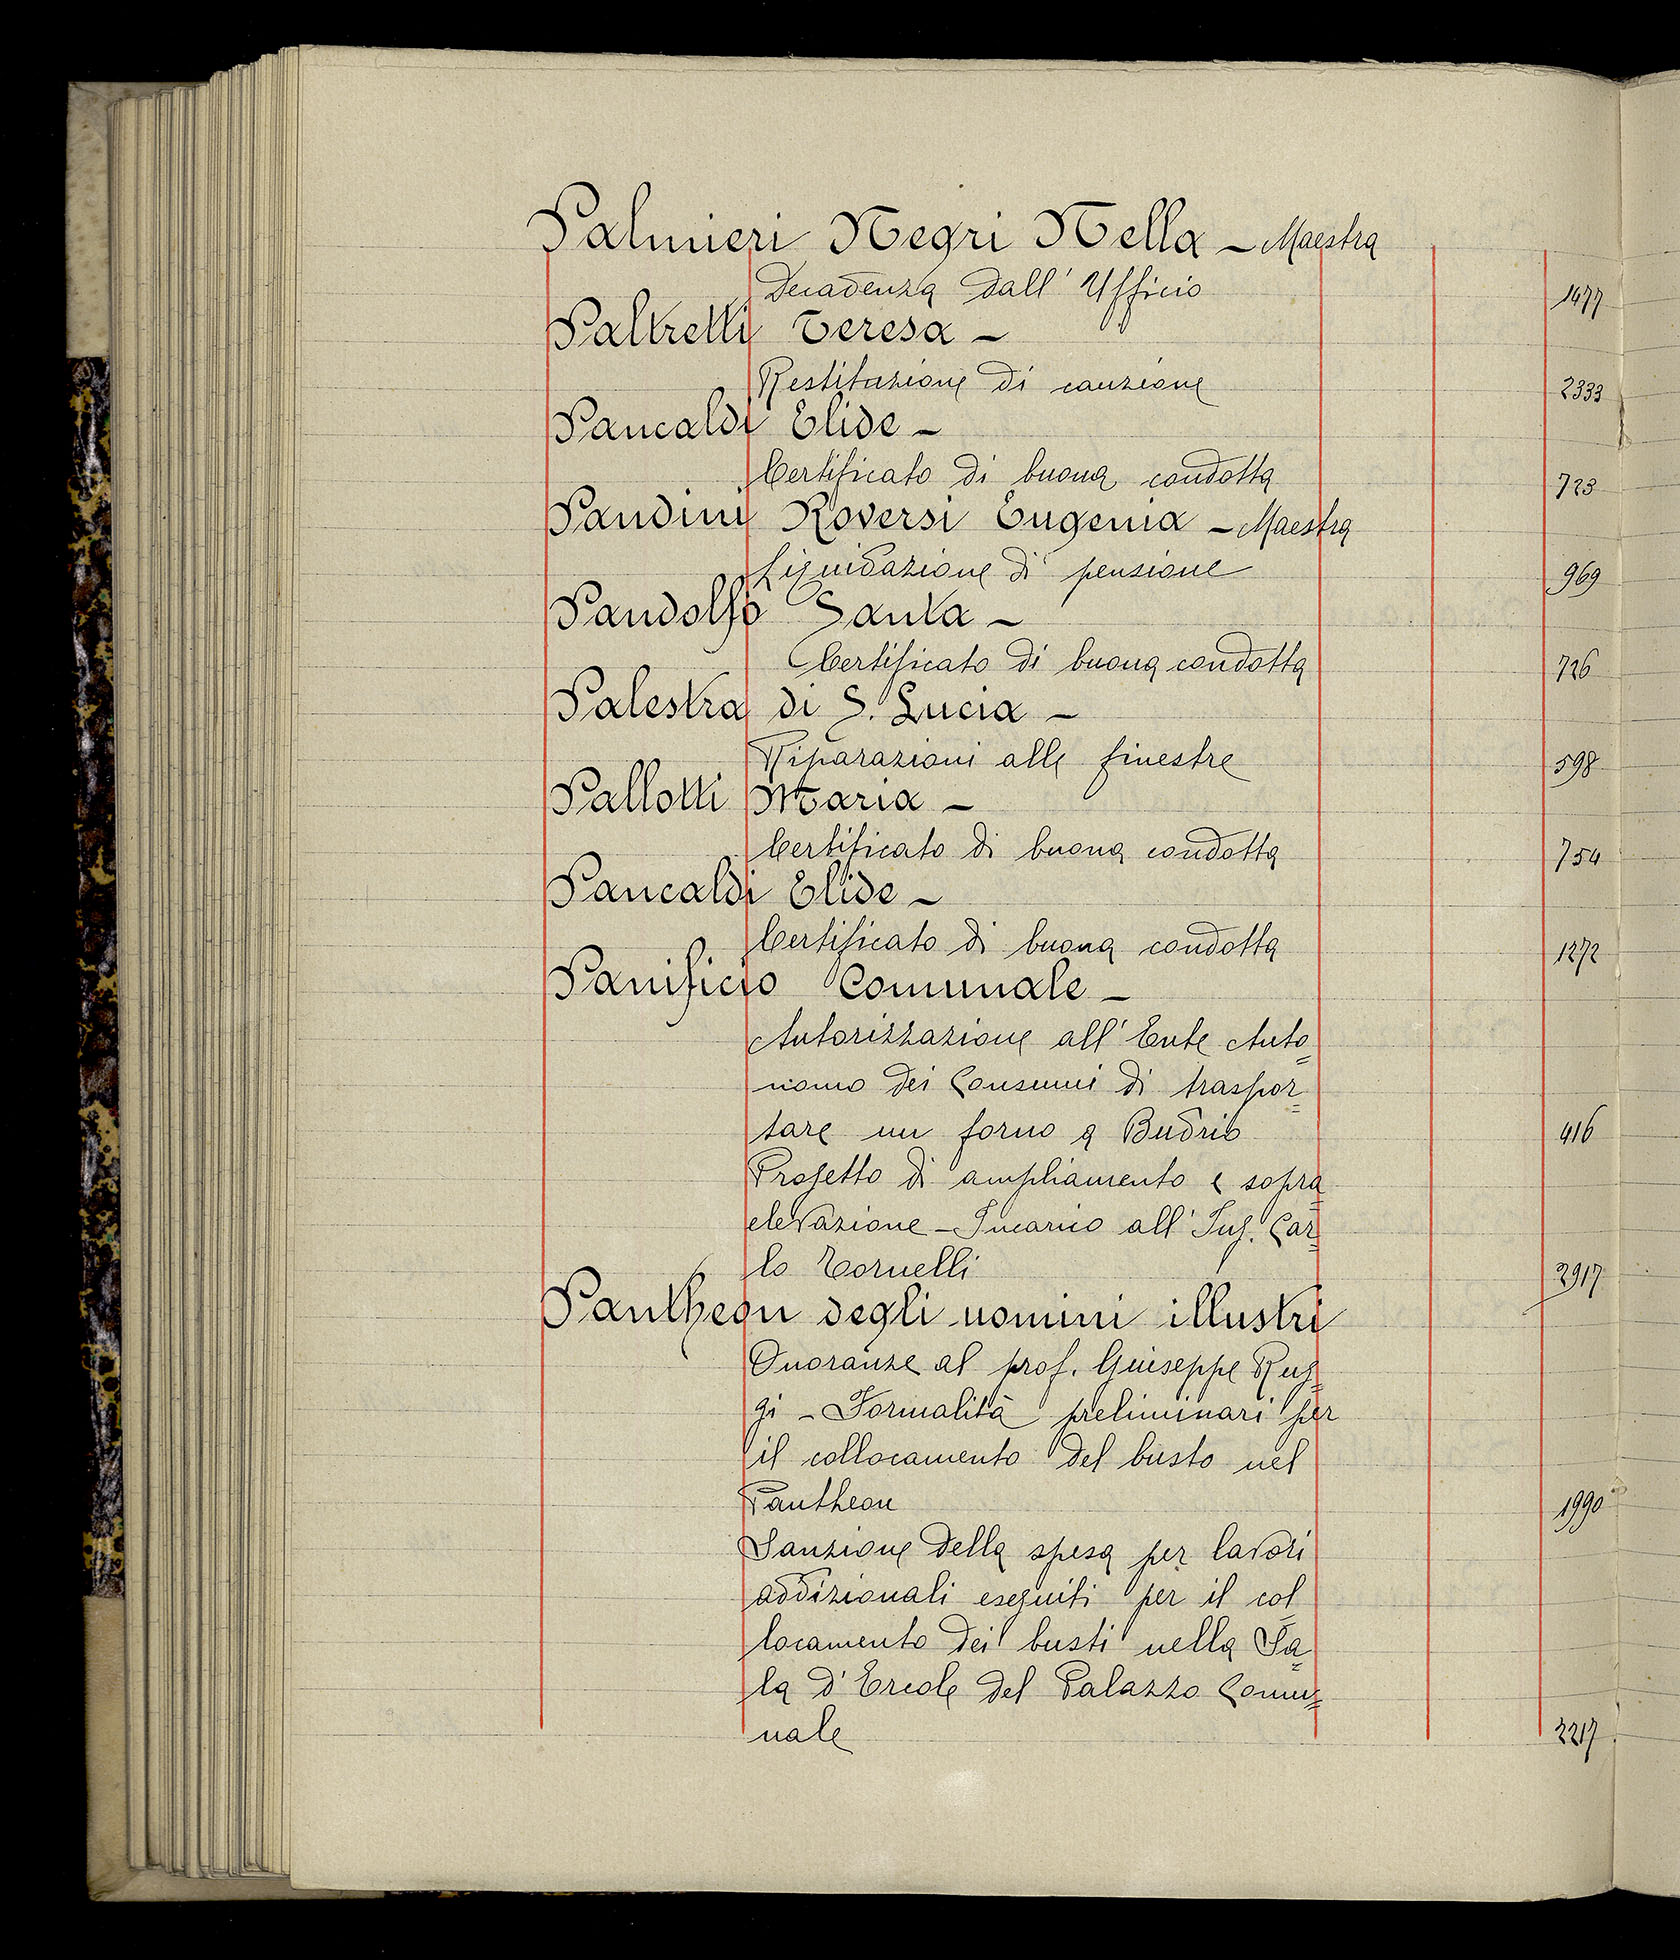 Palmieri Negri Nella - Maestra
Decadenza dall' Ufficio 1477
Paltretti Teresa -
Restituzione di cauzione 2333
Pancaldi Elide -
Certificato di buona condotta 723
Pandini Roversi Eugenia - Maestra
Liquidazione di pensione 969
Pandolfo Santa -
Certificato di buona condotta 726
Palestra di S. Lucia -
Riparazioni alle finestre 598
Pallotti Maria -
Certificato di buona condotta 754
Pancaldi Elide -
Certificato di buona condotta 1272
Panificio Comunale -
Autorizzazione all' Ente Auto=
nomo dei Consumi di traspor=
tare un forno a Budrio 416
Progetto di ampliamento e sopra=
elevazione - Incarico all' Ing. Car=
lo Tornelli 2917
Pantheon degli uomini illustri
Onoranze al prof. Giuseppe Rug=
gi - Formalità preliminari per
il collocamento del busto nel
Pantheon 1990
Sanzione della spesa per lavori
addizionali eseguiti per il col=
locamento dei busti nella Sa=
la d' Ercole del Palazzo Comu=
nale 2217